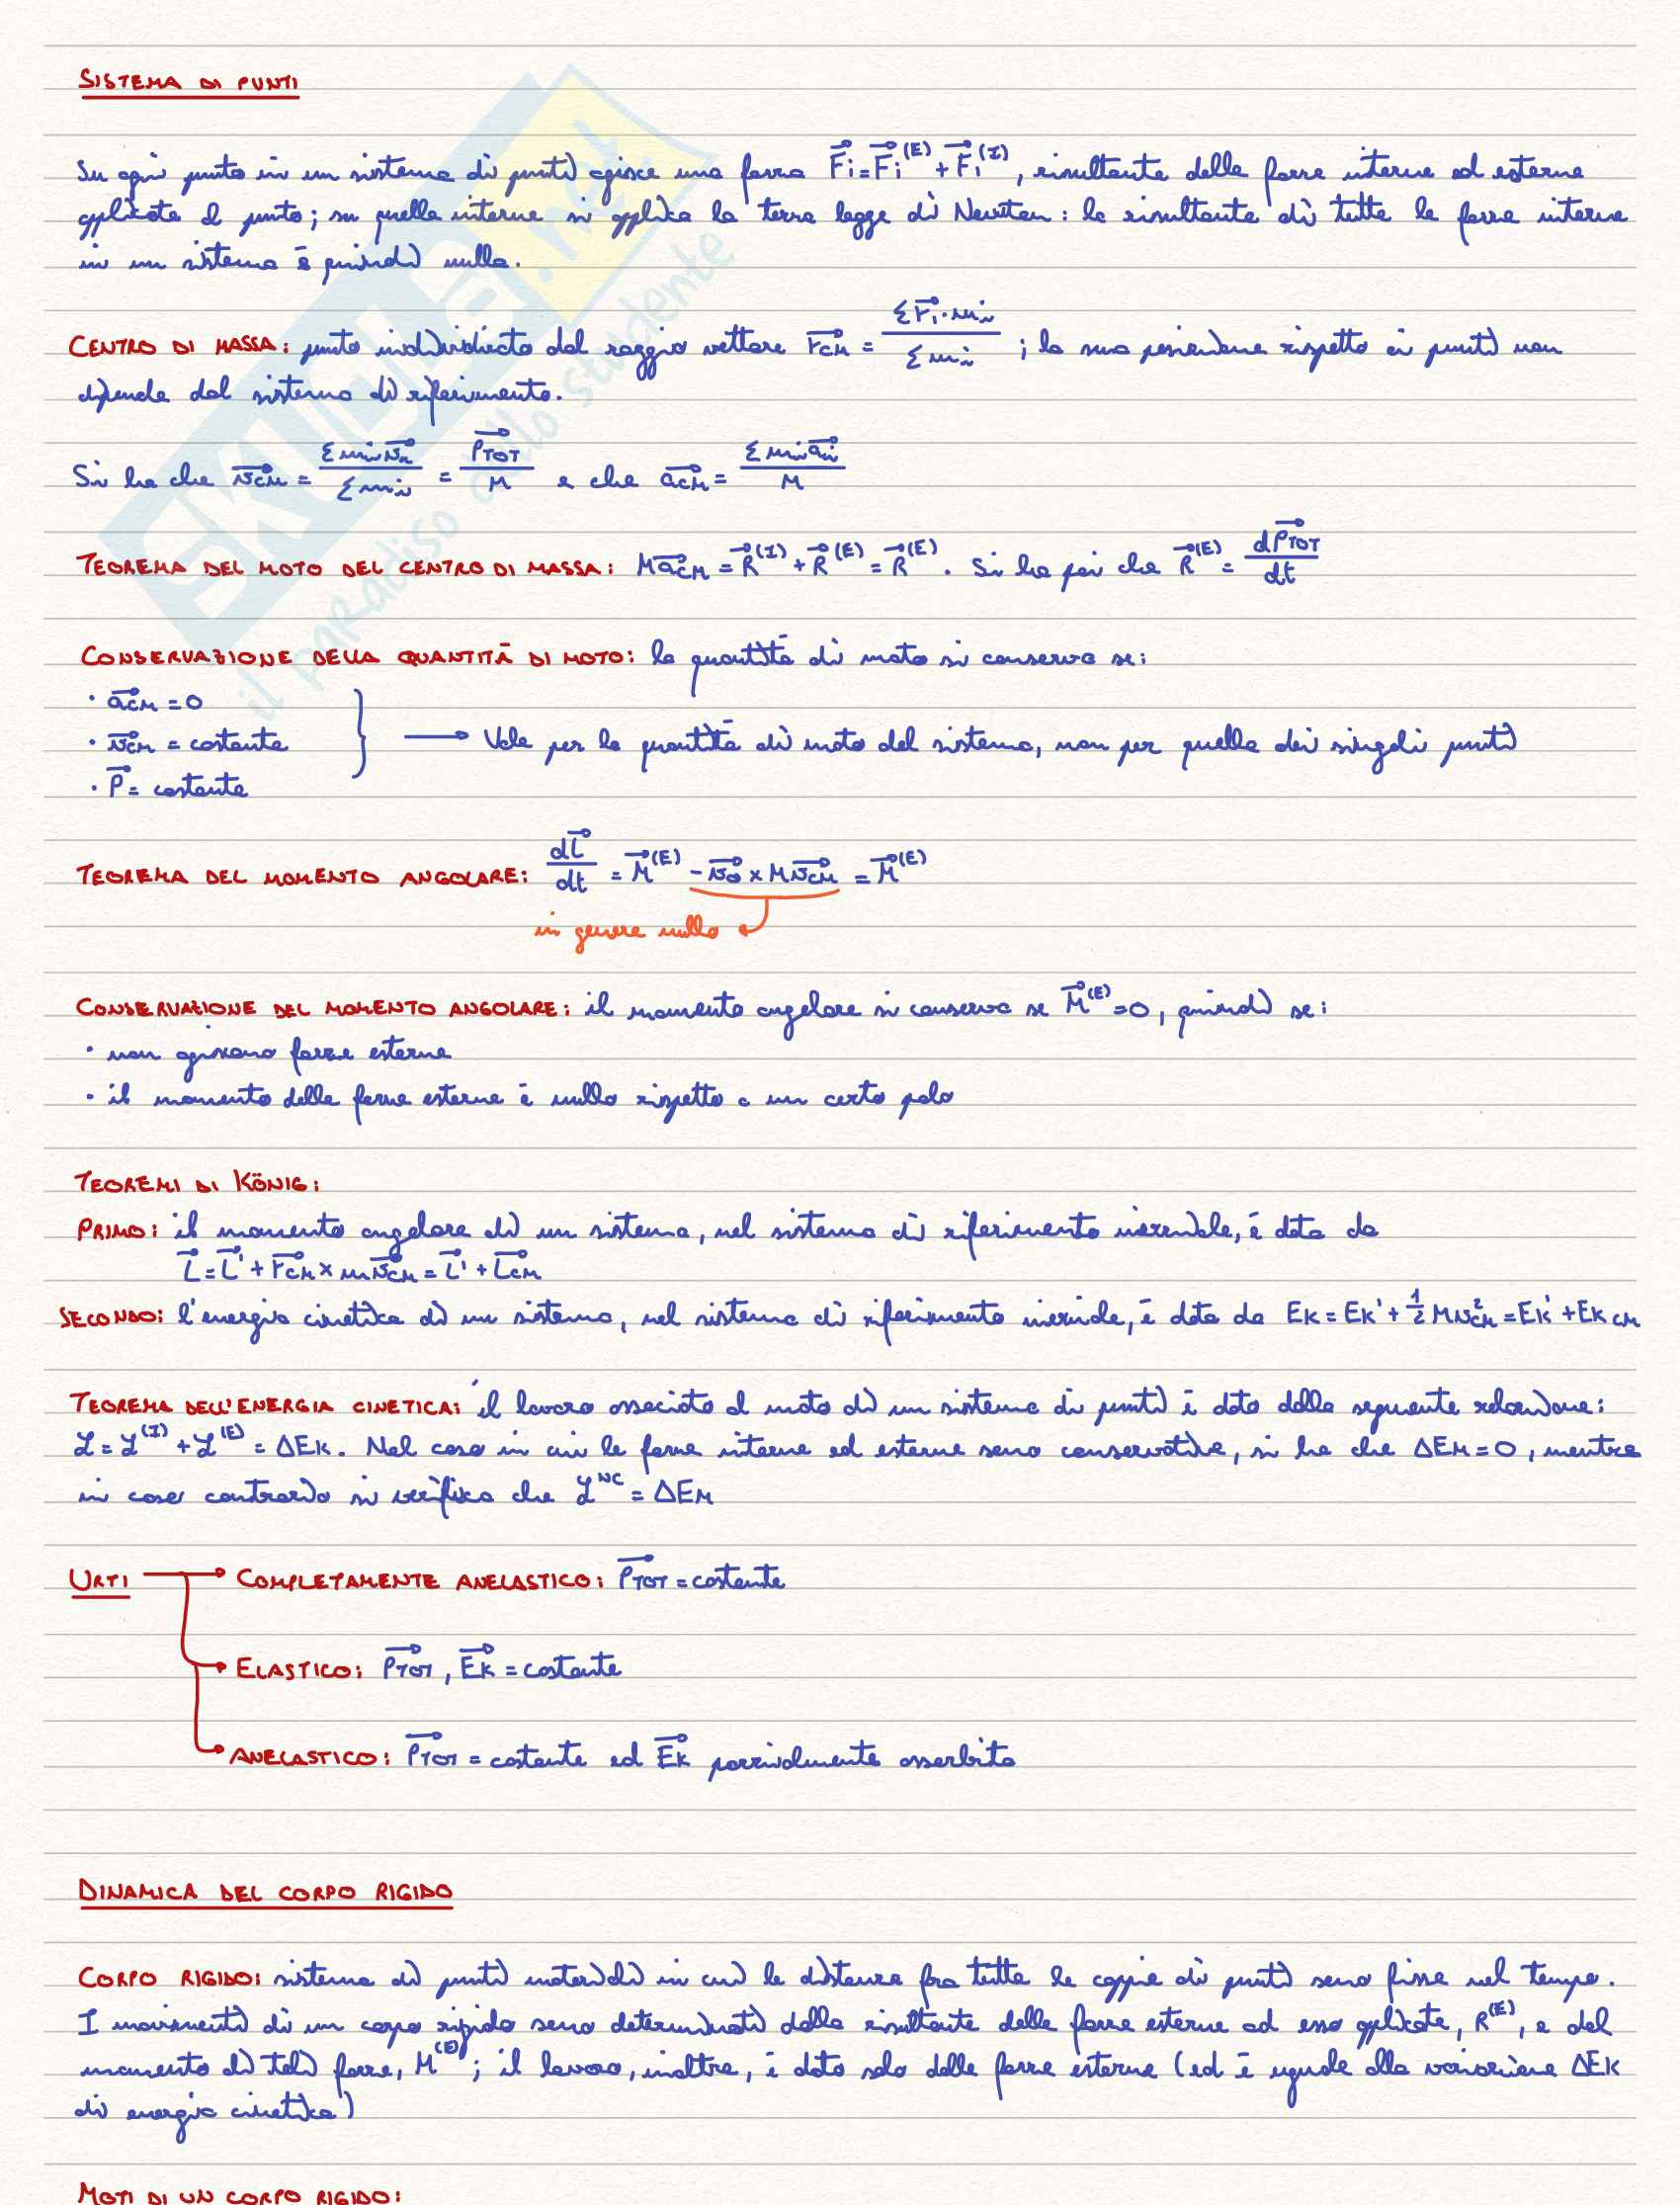 SISTEMA DI PUNTI
Su ogni punto in un sistema di punti agisce una forza F⃗i = F⃗i^(E) + F⃗i^(I), risultante delle forze interne ed esterne
applicate al punto; su quelle interne si applica la terza legge di Newton: la risultante di tutte le forze interne
in un sistema è quindi nulla.
CENTRO DI MASSA: punto individuato dal raggio vettore r⃗CM = Σr⃗i·mi / Σmi ; la sua posizione rispetto ai punti non
dipende dal sistema di riferimento.
Si ha che v⃗CM = Σmi v⃗i / Σmi = P⃗TOT / M e che a⃗CM = Σmi a⃗i / M
TEOREMA DEL MOTO DEL CENTRO DI MASSA: Ma⃗CM = R⃗^(I) + R⃗^(E) = R⃗^(E). Si ha poi che R⃗^(E) = dP⃗TOT / dt
CONSERVAZIONE DELLA QUANTITÀ DI MOTO: la quantità di moto si conserva se:
· a⃗CM = 0
· v⃗CM = costante → Vale per la quantità di moto del sistema, non per quella dei singoli punti
· P⃗ = costante
TEOREMA DEL MOMENTO ANGOLARE: dL⃗ / dt = M⃗^(E) - v⃗o × Mv⃗CM = M⃗^(E)
in genere nullo
CONSERVAZIONE DEL MOMENTO ANGOLARE: il momento angolare si conserva se M⃗^(E) = 0, quindi se:
· non agiscono forze esterne
· il momento delle forze esterne è nullo rispetto a un certo polo
TEOREMI DI KÖNIG:
PRIMO: il momento angolare di un sistema, nel sistema di riferimento inerziale, è dato da
L⃗ = L⃗' + r⃗CM × mv⃗CM = L⃗' + L⃗CM
SECONDO: l'energia cinetica di un sistema, nel sistema di riferimento inerziale, è data da EK = EK' + 1/2 Mv²CM = EK' + EK CM
TEOREMA DELL'ENERGIA CINETICA: il lavoro associato al moto di un sistema di punti è dato dalla seguente relazione:
ℒ = ℒ^(I) + ℒ^(E) = ΔEK. Nel caso in cui le forze interne ed esterne sono conservative, si ha che ΔEM = 0, mentre
in caso contrario si verifica che ℒ^NC = ΔEM
URTI → COMPLETAMENTE ANELASTICO: P⃗TOT = costante
→ ELASTICO: P⃗TOT, E⃗K = costante
→ ANELASTICO: P⃗TOT = costante ed E⃗K parzialmente assorbita
DINAMICA DEL CORPO RIGIDO
CORPO RIGIDO: sistema di punti materiali in cui le distanze fra tutte le coppie di punti sono fisse nel tempo.
I movimenti di un corpo rigido sono determinati dalla risultante delle forze esterne ad esso applicate, R^(E), e dal
momento di tali forze, M^(E); il lavoro, inoltre, è dato solo dalle forze esterne (ed è uguale alla variazione ΔEK
di energia cinetica)
MOTI DI UN CORPO RIGIDO:
SKUOLA.net
il paradiso dello studente